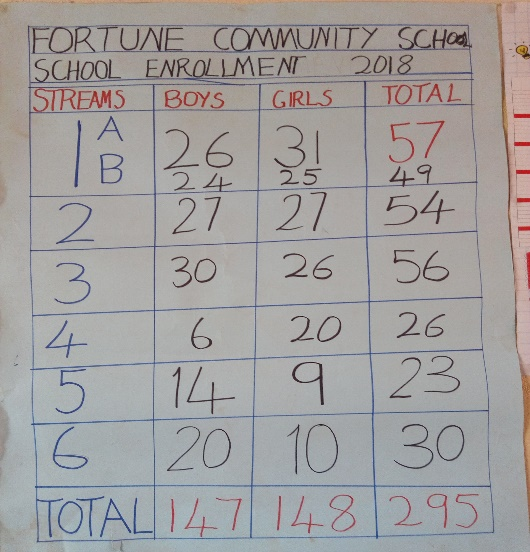 FORTUNE COMMUNITY SCHOOL
SCHOOL ENROLLMENT 2018
STREAMS BOYS GIRLS TOTAL
1 A 26 31 57
B 24 25 49
2 27 27 54
3 30 26 56
4 6 20 26
5 14 9 23
6 20 10 30
TOTAL 147 148 295